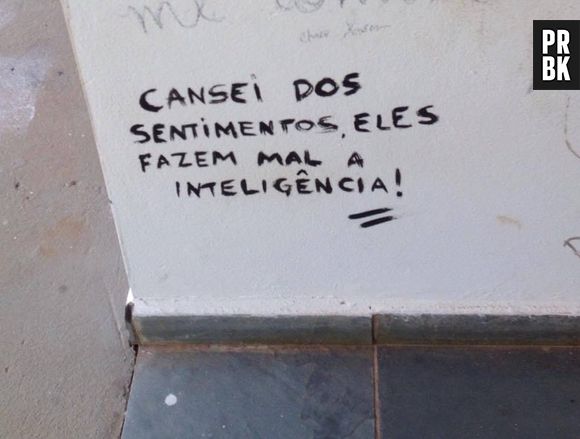 PR
BK
CANSEI DOS
SENTIMENTOS, ELES
FAZEM MAL A
INTELIGÊNCIA!